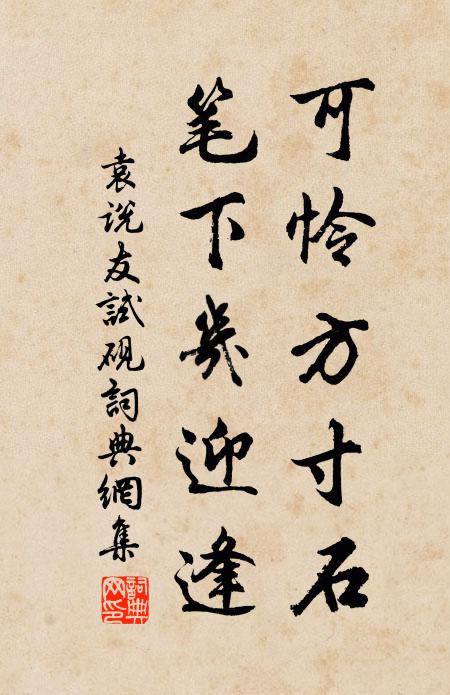 可怜方寸石
笔下几迎逢
袁说友試硯詞典網集
詞典
网印